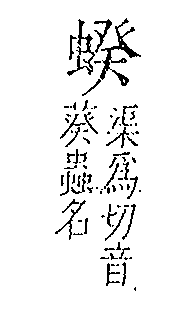 䗋
渠爲切音
葵蟲名